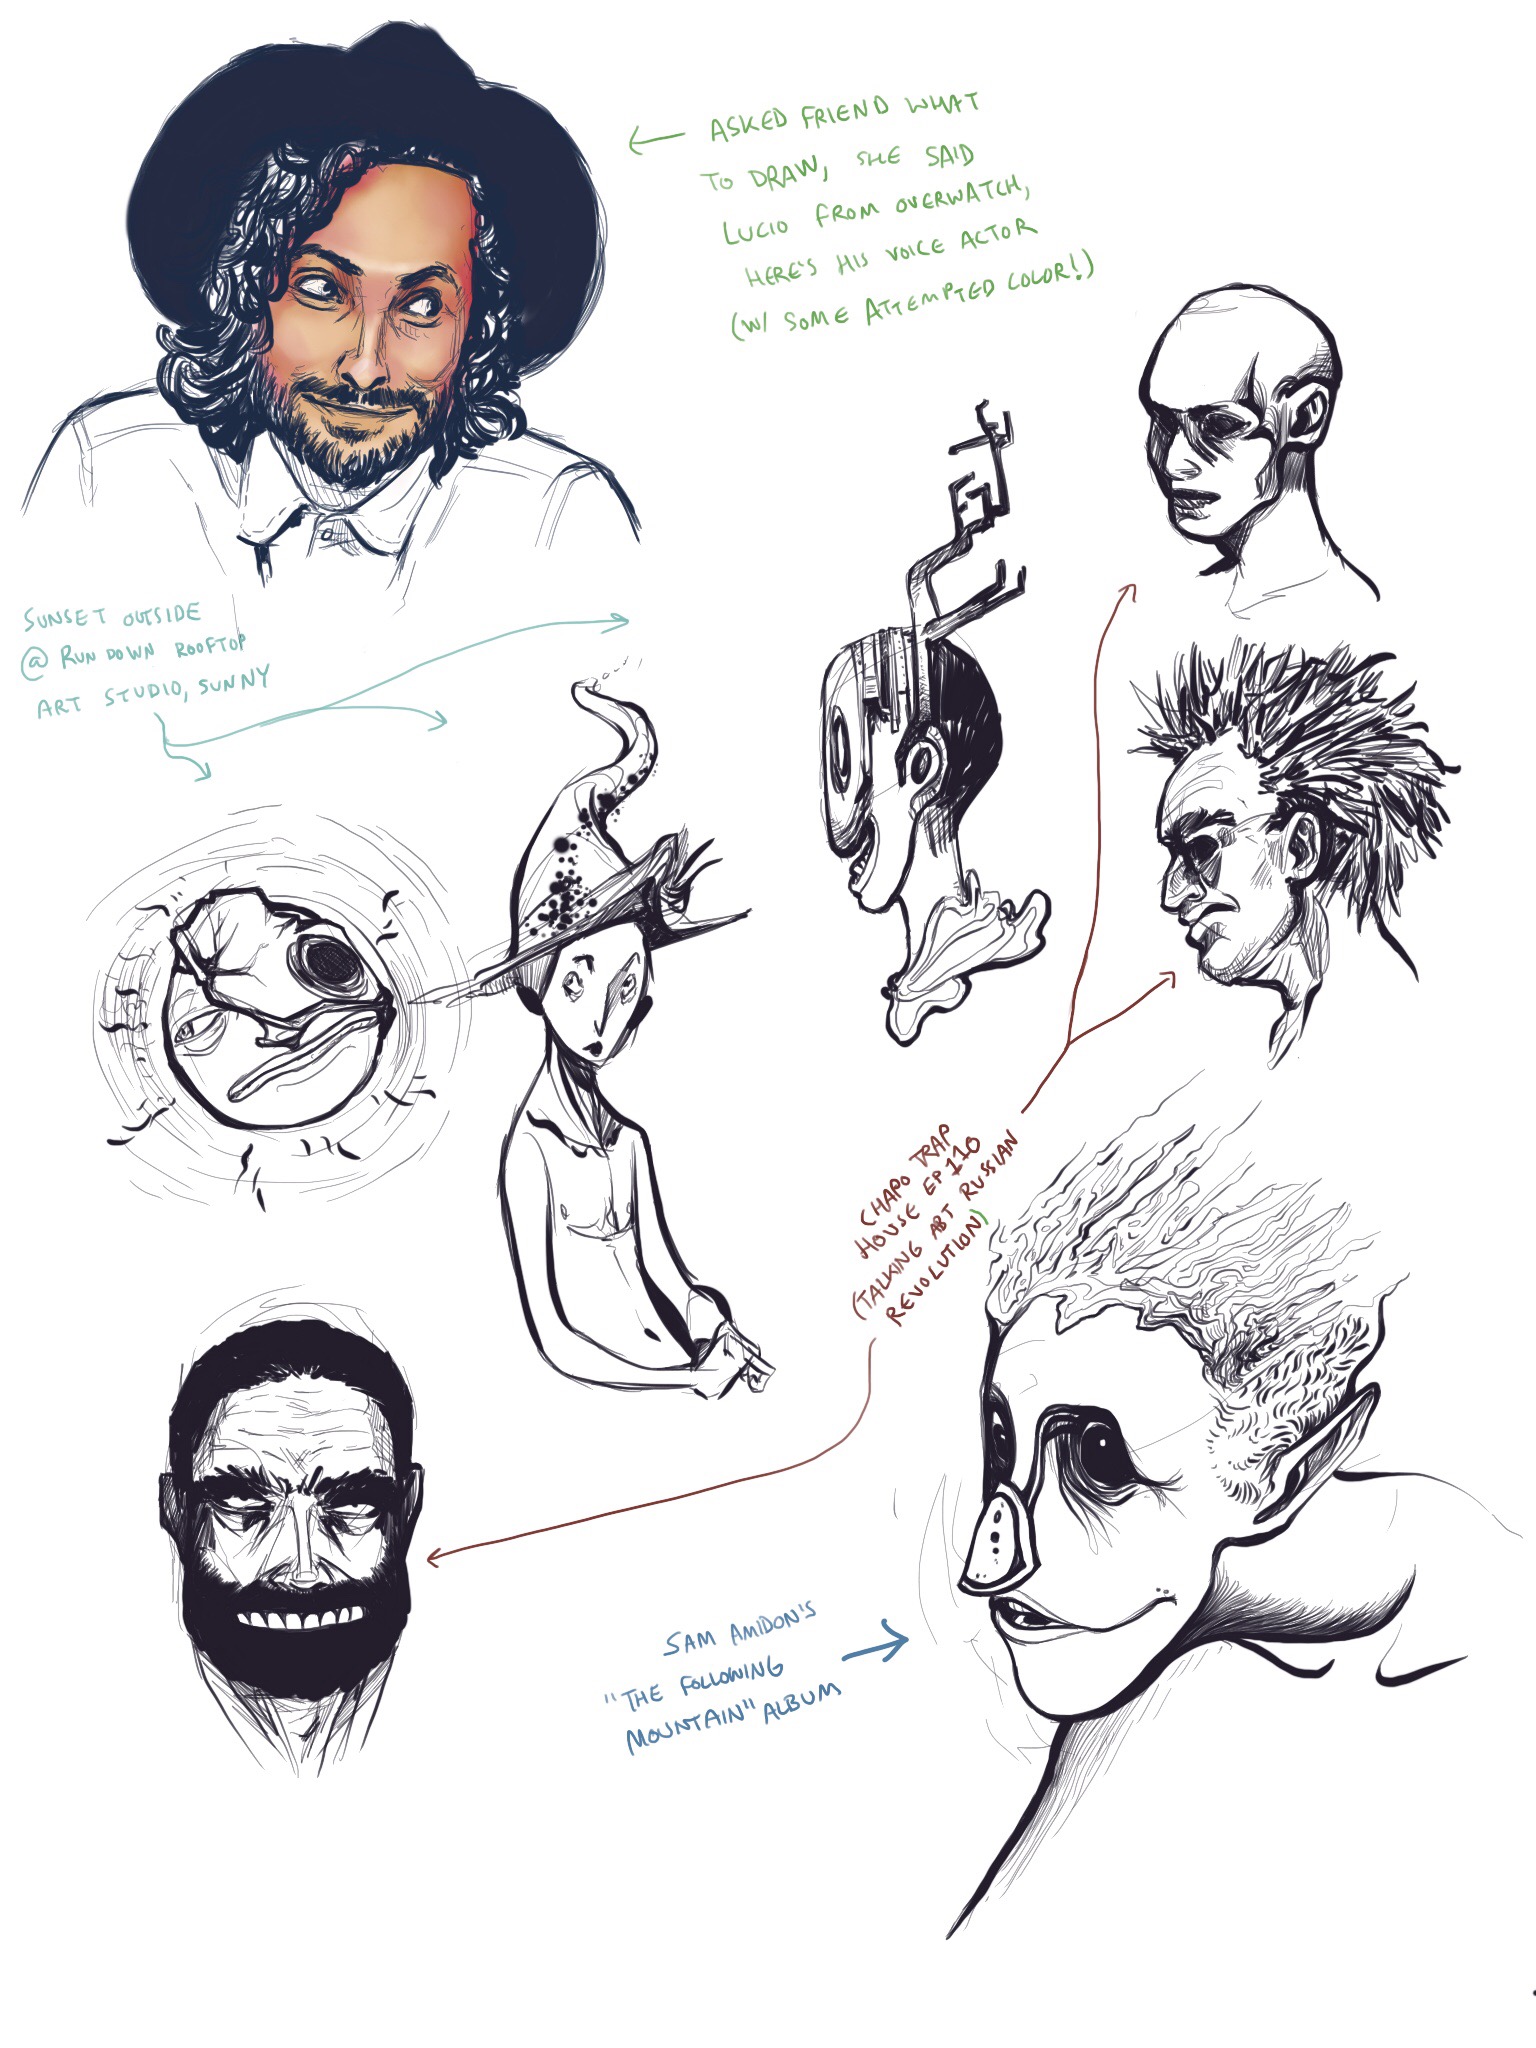 ASKED FRIEND WHAT
TO DRAW, SHE SAID
LUCIO FROM OVERWATCH,
HERE'S HIS VOICE ACTOR
(W/ SOME ATTEMPTED COLOR!)
SUNSET OUTSIDE
@ RUN DOWN ROOFTOP
ART STUDIO, SUNNY
CHAPO TRAP
HOUSE EP 110
(TALKING ABT RUSSIAN
REVOLUTION)
SAM AMIDON'S
"THE FOLLOWING
MOUNTAIN" ALBUM